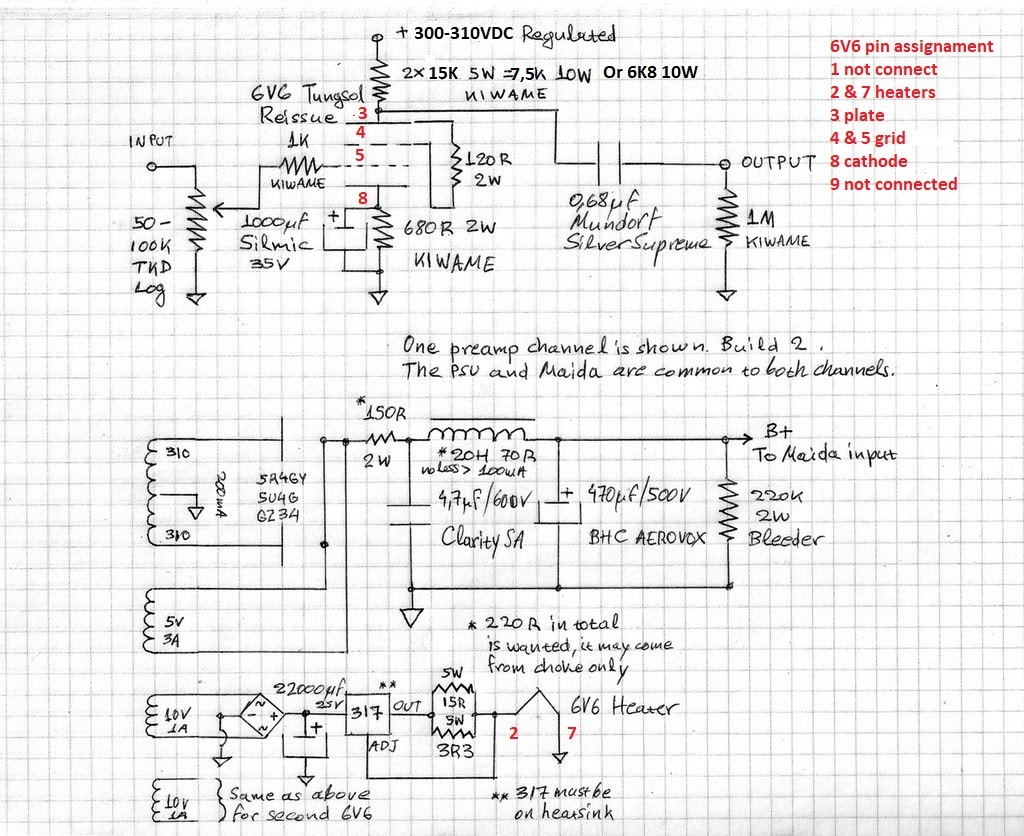 + 300-310VDC Regulated
2x 15K 5W =7,5K 10W Or 6K8 10W
KIWAME
6V6 Tungsol
Reissue
3
4
5
8
6V6 pin assignament
1 not connect
2 & 7 heaters
3 plate
4 & 5 grid
8 cathode
9 not connected
INPUT
1K
KIWAME
120R
2W
OUTPUT
50-
100K
TKD
Log
1000µF
Silmic
35V
680R 2W
KIWAME
0,68µF
Mundorf
Silver Supreme
1M
KIWAME
One preamp channel is shown. Build 2.
The PSU and Maida are common to both channels.
310
310
200mA
5R4GY
5U4G
GZ34
*150R
2W
* 20H 70R
no less > 100mA
4,7µF/600V
Clarity SA
+
470µF/500V
BHC AEROVOX
B+
To Maida input
220K
2W
Bleeder
5V
3A
* 220R in total
is wanted, it may come
from choke only
10V
1A
~
~
-
+
22000µF
25V
+
**
317
OUT
ADJ
5W
15R
5W
3R3
6V6 Heater
2
7
10V
1A
Same as above
for second 6V6
** 317 must be
on heatsink